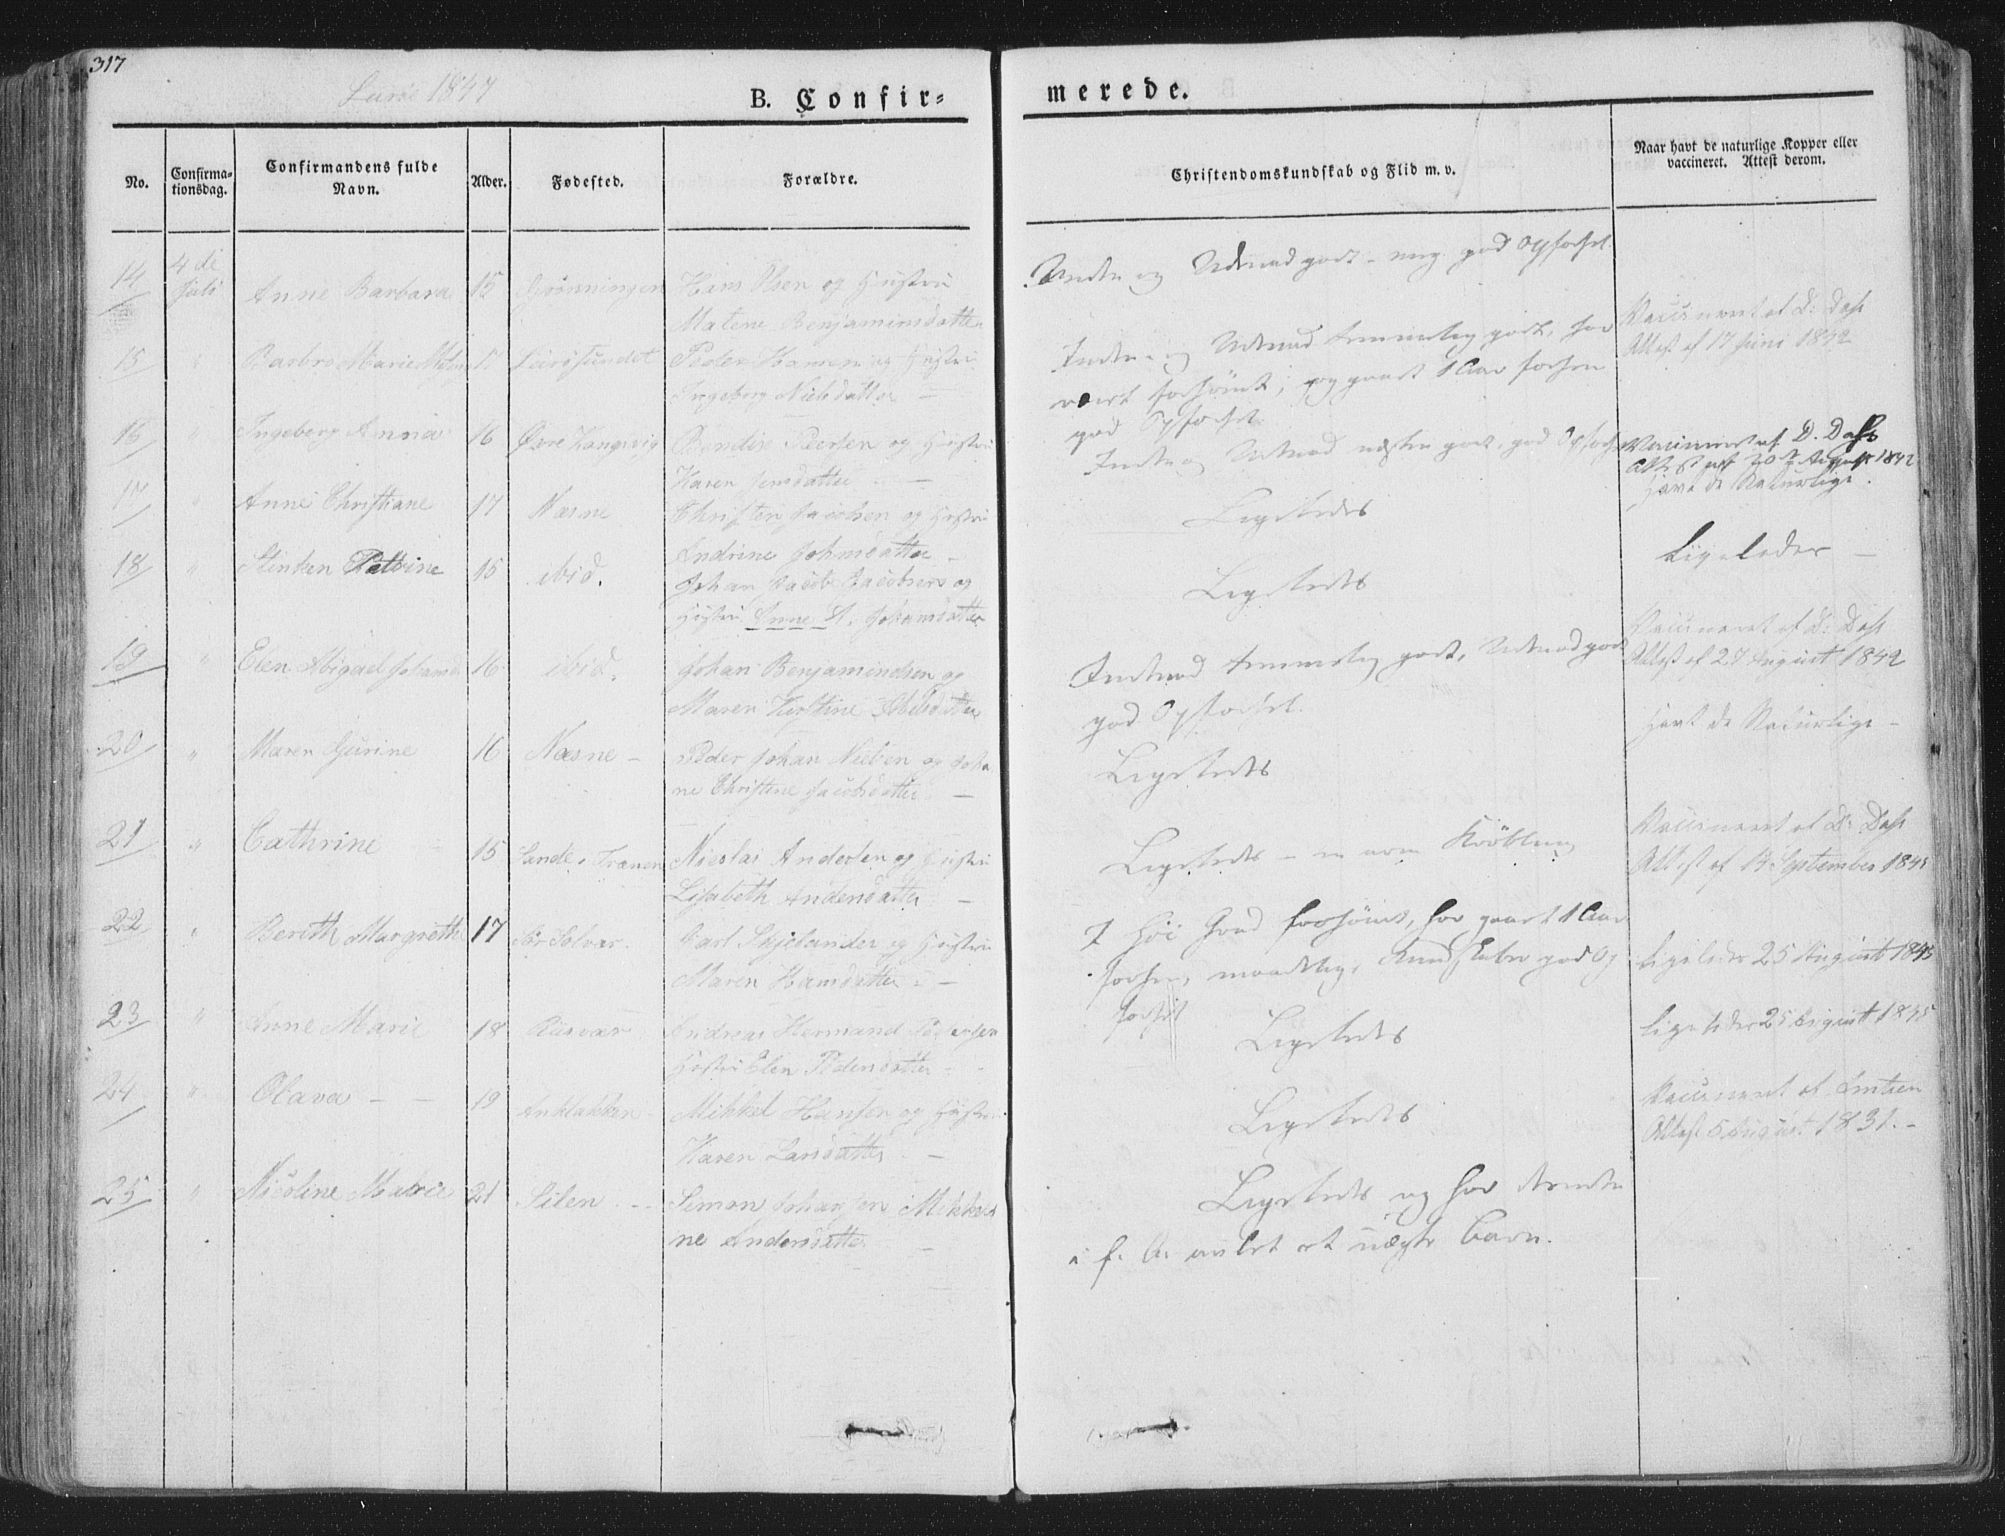 317
Lurøe 1847
B. Confir=
merede.
No.
Confirma-
tionsdag.
Confirmandens fulde
Navn.
Alder.
Fødested.
Forældre.
Christendomskundskab og Flid m. v.
Naar havt de naturlige Kopper eller
vaccineret. Attest derom.
14 4de Juli Anne Barbara 15 Grønningen Hans Olsen og Hustru
Malene Benjaminsdatter
Inden og Udenad godt - meg god Opførsel
Vaccineret af D: Dass
Attest af 17 Juni 1842
15 " Barbro Marie 17 Lurøsundet Peder Hansen og Hustru
Ingeborg Nielsdatter —
Inden og Udenad temmelig godt, har
vært forsømt, og gaaet 1 Aar forhen
god Opførsel
16 " Ingeborg Anna 16 Øvre Kangsvig Bendix Peersen og Hustru
Karen Jensdatter —
Inden og Udenad næsten godt, god Opførsel
Vaccineret af D. Dass
Attest af 20de August 1842
17 " Anne Christiane 17 Næsne Christen Jacobsen og Hustru
Andrine Johnsdatter —
Ligeledes
Havt de Naturlige.
18 " Stinken Petrine 15 ibid. Johan Jacob Jacobsen og
Hustru Anne A. Johansdatter
Ligeledes
Ligeledes —
19 " Elen Abigael 16 ibid. Johan Benjaminsen og
Maren Kirstine Abelsdatter
Indenad temmelig godt, Udenad godt
god Opførsel.
Vaccineret af D: Dass
Attest af 27 August 1842
20 " Maren Gurine 16 Næsne — Peder Johan Nielsen og Joha
ne Christine Jacobsdatter —
Ligeledes
Havt de Naturlige —
21 " Cathrine 15 Sande i Trænen Nicolai Andersen og Hustru
Lisabeth Andersdatter —
Ligeledes - en arm Krøbling
Vaccineret af D: Dass
Attest af 14 September 1845
22 " Berith Margreth 17 Sør Solvær. Carl Skjelander og Hustru
Maren Hansdatter —
I høi Grad forsømt, har gaaet 1 Aar
forhen, maadelig Kundskaber god Op
førsel
Ligeledes 25 August 1845
23 " Anne Marie 18 Riisvær Andreas Hermand Pedersen
Hustru Elen Pedersdatter —
Ligeledes
Ligeledes 25 August 1845
24 " Olava — — 19 Anklakken Mikkel Hansen og Hustru
Karen Larsdatter —
Ligeledes
Vaccineret af
Attest 5 August 1831. -
25 " Nicoline Marie 21 Silen — Simon Johansen Mikkel
ne Andersdatter —
Ligeledes og har desuden
i f. A. avlet et uægte Barn.